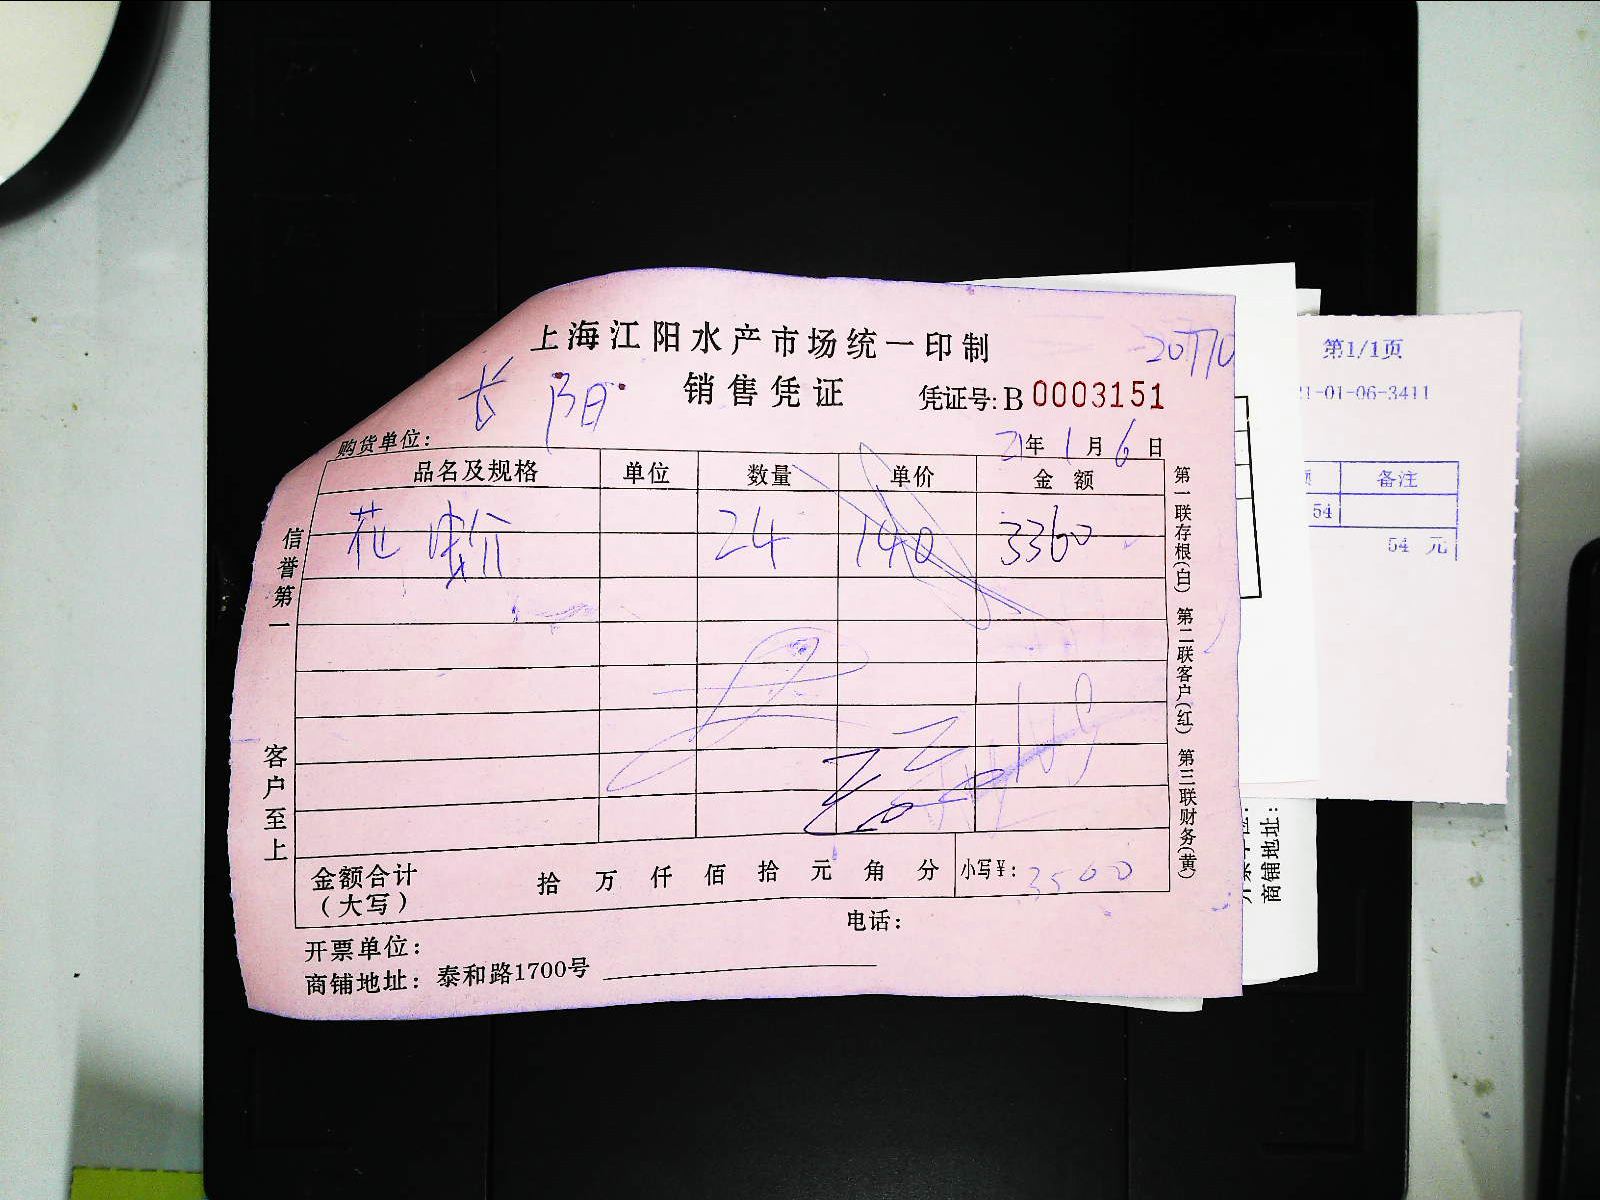 上海江阳水产市场统一印制
-20770
销售凭证
凭证号: B 0003151
长阳
购货单位:
21年1月6日
品名及规格 单位 数量 单价 金额
花 24 140 3360
信誉第一
客户至上
第一联存根(白) 第二联客户(红) 第三联财务(黄)
金额合计
(大写)
拾 万 仟 佰 拾 元 角 分 小写¥: 3500
电话:
开票单位:
商铺地址: 泰和路1700号
第1/1页
21-01-06-3411
备注
54
54 元
商铺地址: